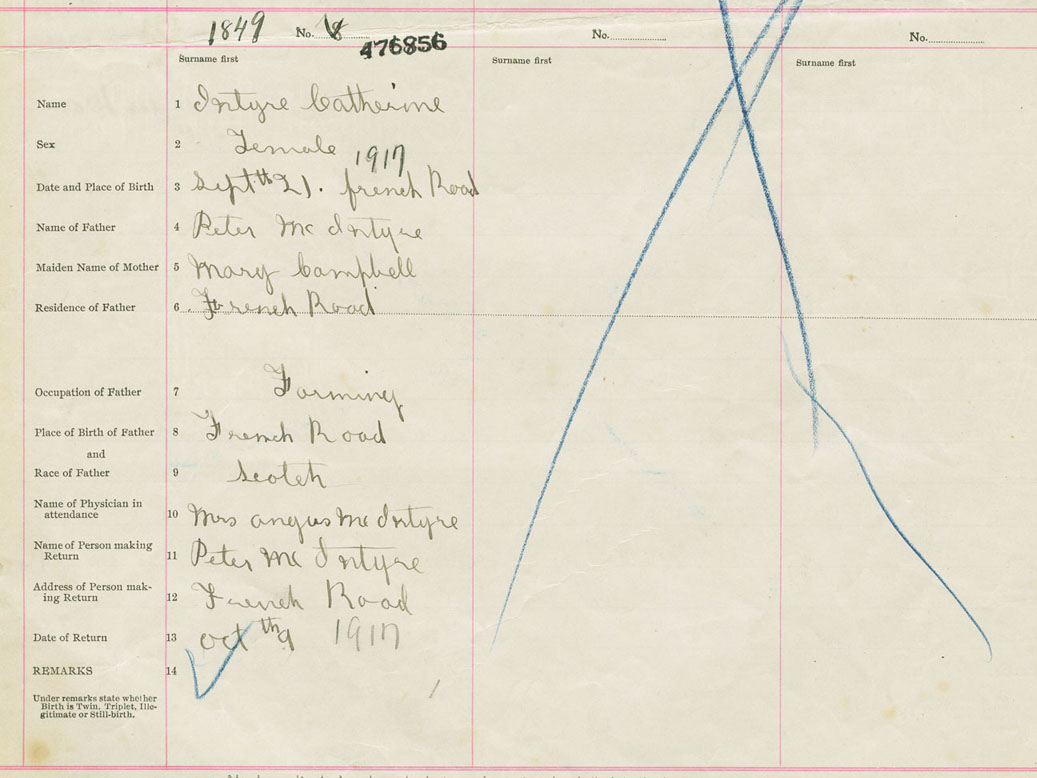 1849 No. 8 No. No.
476856
Surname first Surname first Surname first
Name 1 Intyre Catherine
Sex 2 Female
1917
Date and Place of Birth 3 Sept th 21. french Road
Name of Father 4 Peter Mc Intyre
Maiden Name of Mother 5 Mary Campbell
Residence of Father 6 French Road
Occupation of Father 7 Farming
Place of Birth of Father 8 French Road
and
Race of Father 9 Scotch
Name of Physician in
attendance 10 Mrs angus Mc Intyre
Name of Person making
Return 11 Peter Mc Intyre
Address of Person mak-
ing Return 12 French Road
Date of Return 13 oct th 9 1917
REMARKS 14
Under remarks state whether
Birth is Twin, Triplet, Ille-
gitimate or Still-birth.